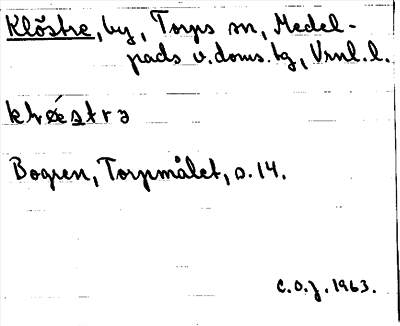 Klöstre, by, Torps sn, Medel-
pads v. doms. tg, Vrnl. l.
klǿstrə
Bogren, Torpmålet, s. 14.
C.O.J. 1963.